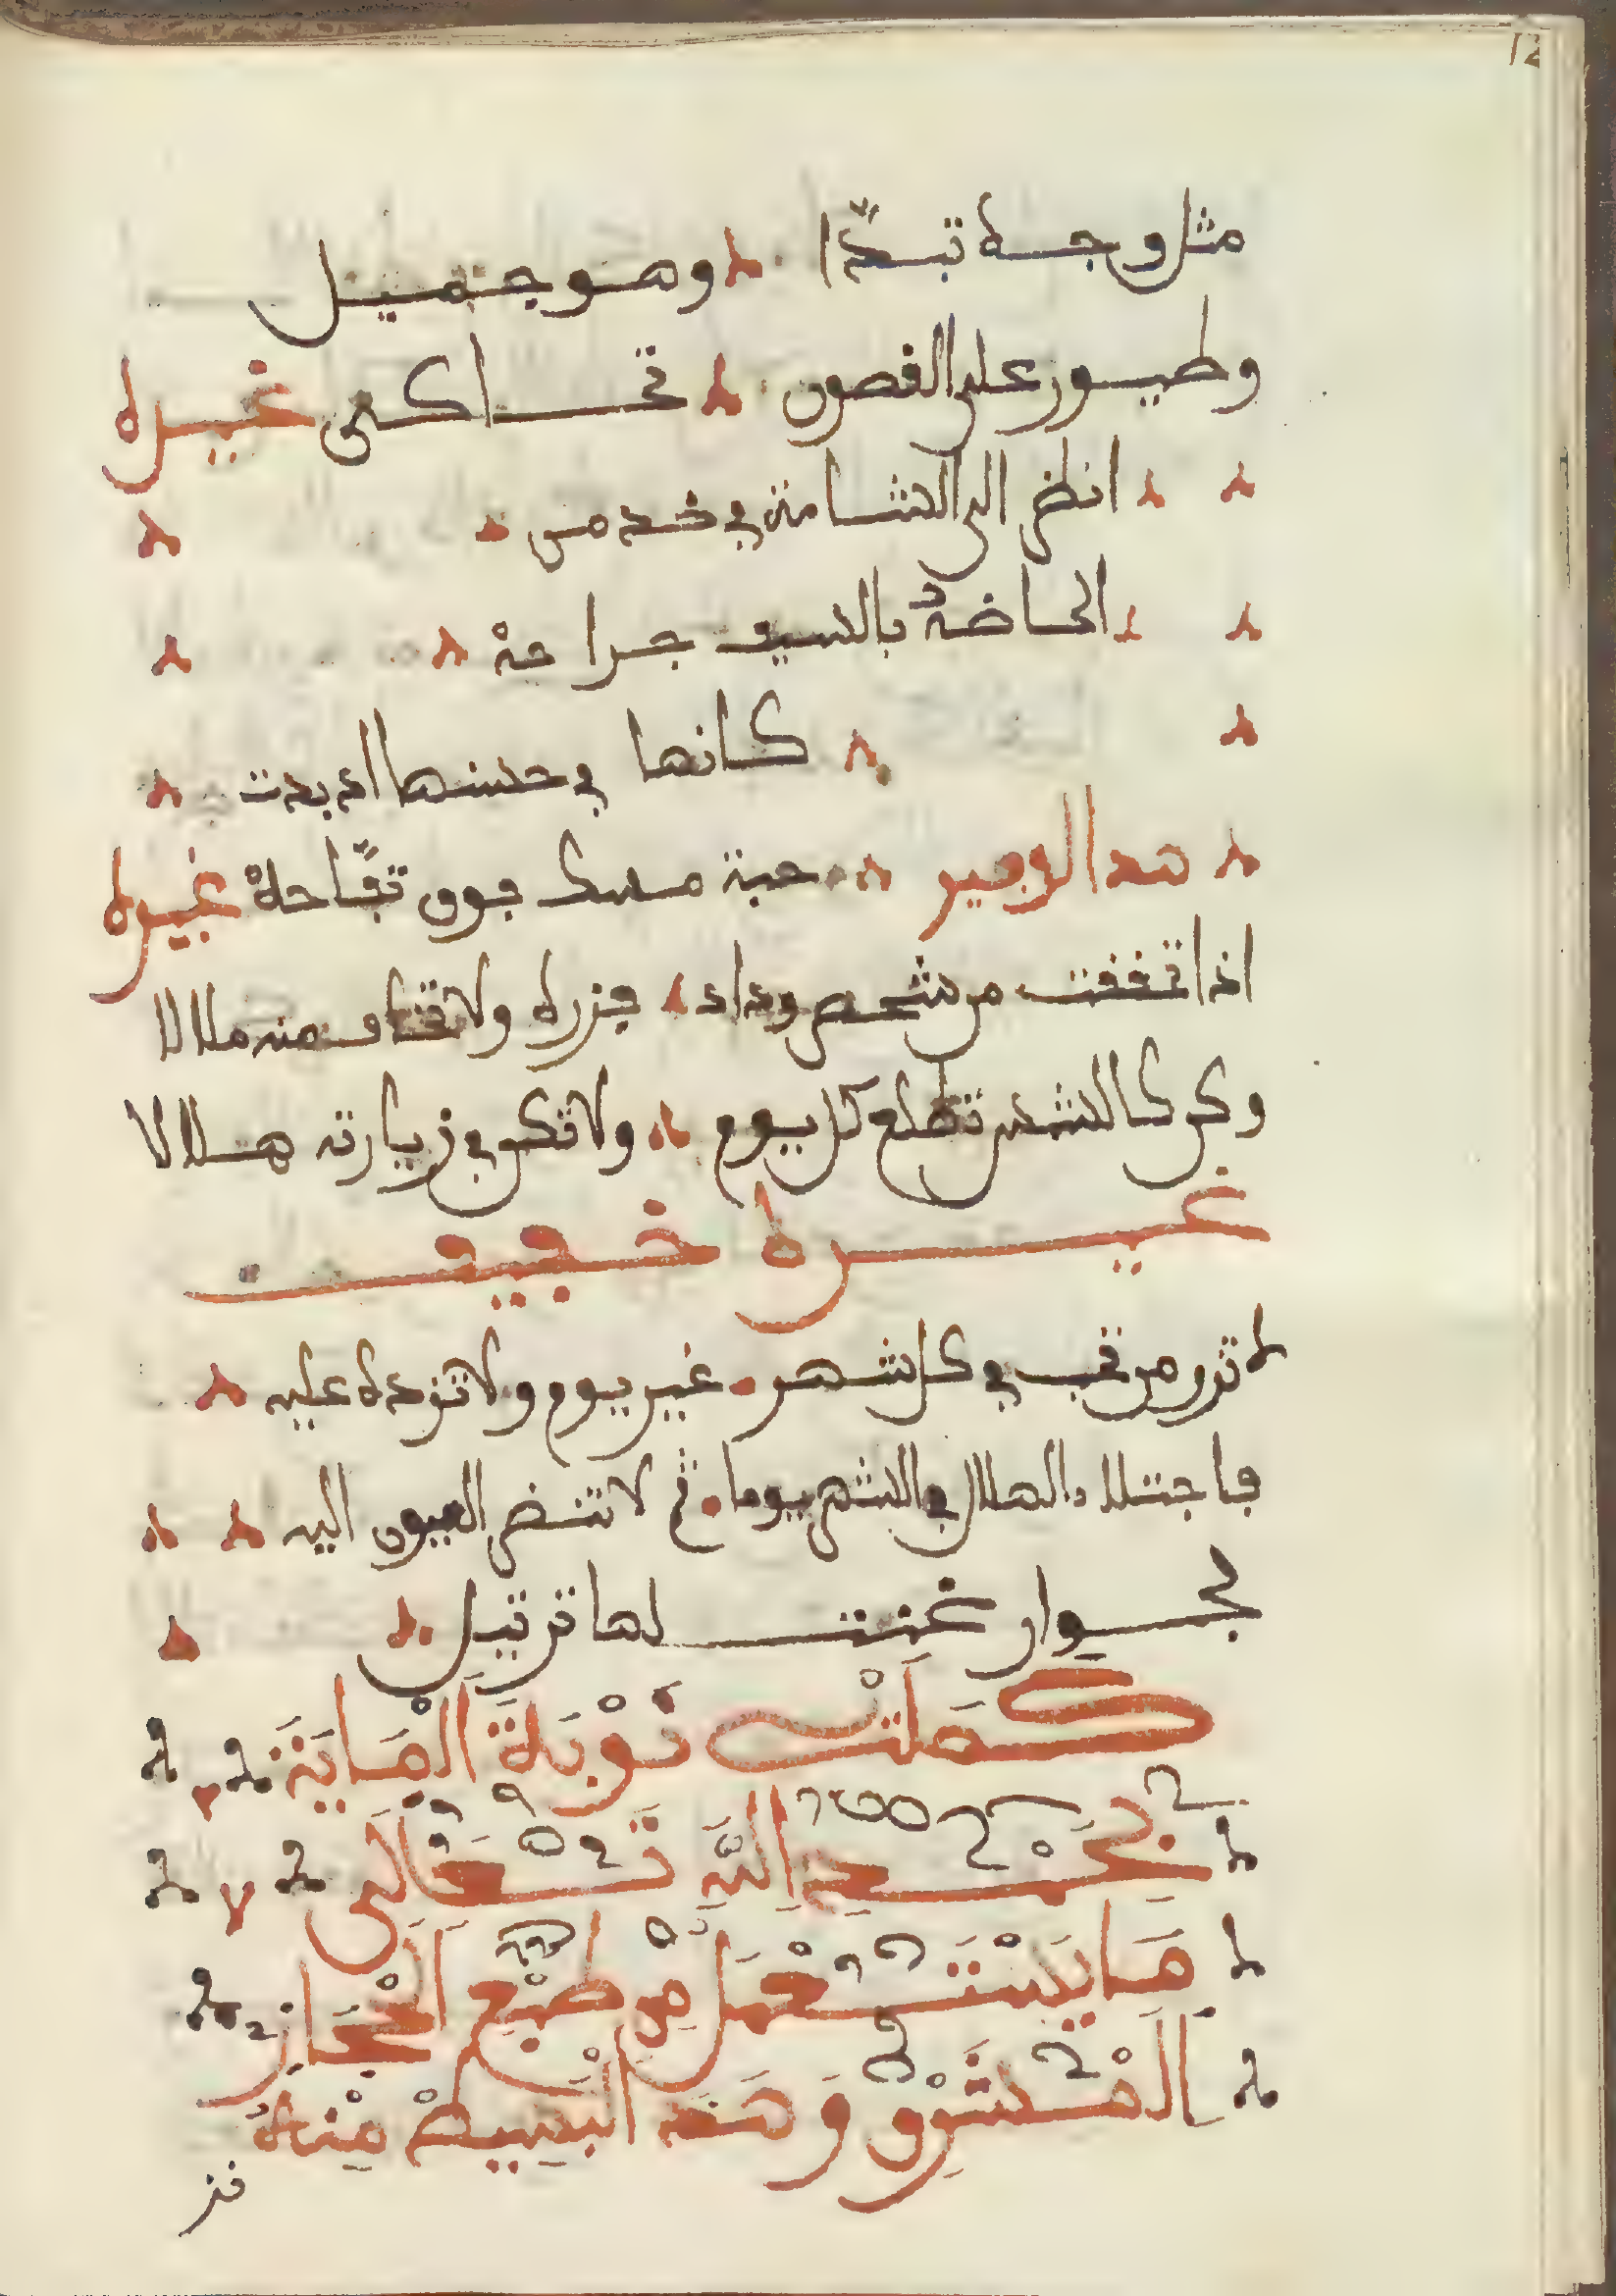 12
مثل وجه تبدّا وهو جميل
وطيور على الغصون تحاكى غيره
انظر الى الشامة في خد من
الحاضهُ بالسيف جراحة
كانها في حسنها اذ بدت
حبة مسك فوق تفّاحة غيره
اذا تخففت من شخص وداد فزره ولا تخاف منه ملالا
وكن كالشمس تطلع كل يوم ولا تكن في زيارته هلالا
غيره خفيف
لا تزر من تحب في كل شهر غير يوم ولا تزده عليه
فاجتلاء الهلال في الشهر يوما ثم لا تنضر العيون اليه
لجوار غنت لها ترتيل
كَمَلَتْ نَوْبَة الْمَايَة
بِحَمْدِ اللَّهِ تَعَالَى
مَا يَسْتَعْمَل مِن طَبْعِ الْحِجَازِ
الْمَشْرِقِي وَهَذَا الْبَسِيطْ مِنْهُ